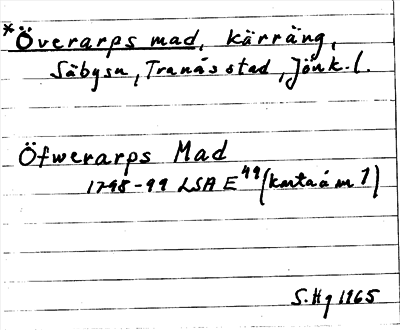 *Överarps mad, kärräng,
Säbysn, Tranås stad, Jönk. l.
Öfwerarps Mad
1798-99 LSA E 49 (karta å m 1)
S. Hg 1965